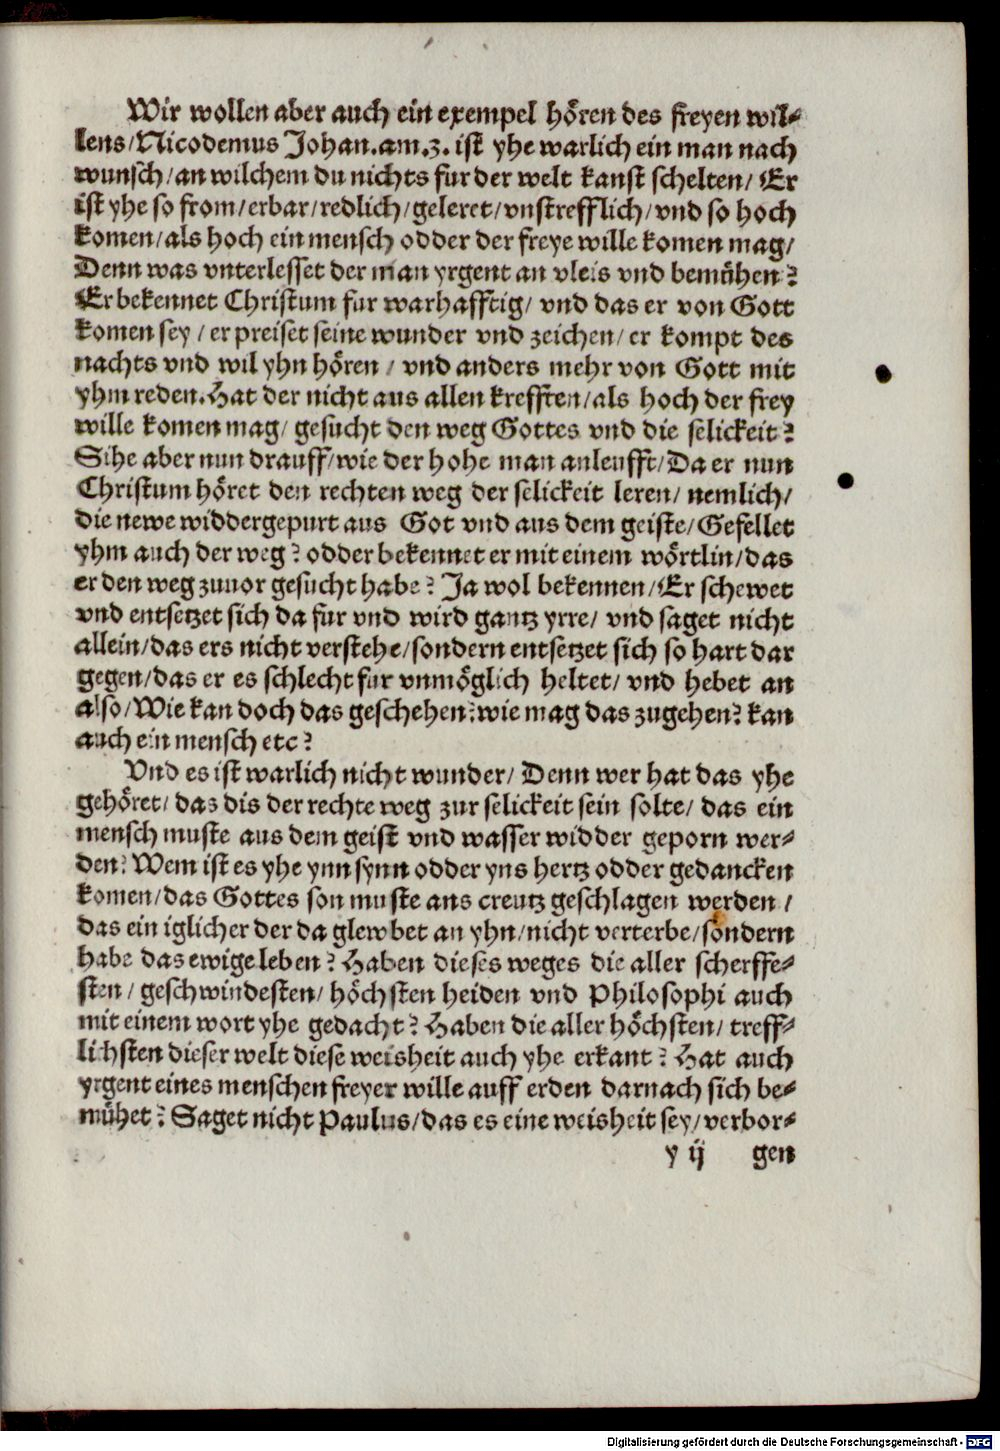 Wir wollen aber auch ein exempel hören des freyen wil-
lens/Nicodemus Johan.am.3. ist yhe warlich ein man nach
wunsch/an wilchem du nichts fur der welt kanst schelten/ Er
ist yhe so from/erbar/redlich/geleret/vnstrefflich/vnd so hoch
komen/als hoch ein mensch odder der freye wille komen mag/
Denn was vnterlesset der man yrgent an vleis vnd bemühen?
Er bekennet Christum fur warhafftig/ vnd das er von Gott
komen sey/er preiset seine wunder vnd zeichen/er kompt des
nachts vnd wil yhn hören/ vnd anders mehr von Gott mit
yhm reden.Hat der nicht aus allen krefften/als hoch der frey
wille komen mag/ gesucht den weg Gottes vnd die selickeit?
Sihe aber nun drauff/wie der hohe man anleufft/Da er nun
Christum höret den rechten weg der selickeit leren/ nemlich/
die newe widdergepurt aus Got vnd aus dem geiste/Gefellet
yhm auch der weg? odder bekennet er mit einem wörtlin/das
er den weg zuuor gesucht habe? Ja wol bekennen/Er schewet
vnd entsetzet sich da fur vnd wird gantz yrre/ vnd saget nicht
allein/das ers nicht verstehe/sondern entsetzet sich so hart dar
gegen/das er es schlecht fur vnmöglich heltet/ vnd hebet an
also/Wie kan doch das geschehen?wie mag das zugehen? kan
auch ein mensch etc?
Vnd es ist warlich nicht wunder/ Denn wer hat das yhe
gehöret/das dis der rechte weg zur selickeit sein solte/ das ein
mensch muste aus dem geist vnd wasser widder geporn wer-
den? Wem ist es yhe ynn synn odder yns hertz odder gedancken
komen/das Gottes son muste ans creutz geschlagen werden/
das ein iglicher der da glewbet an yhn/nicht verterbe/sondern
habe das ewige leben? Haben dieses weges die aller scherffe-
sten/geschwindesten/höchsten heiden vnd Philosophi auch
mit einem wort yhe gedacht? Haben die aller höchsten/treff-
lichsten dieser welt diese weisheit auch yhe erkant? Hat auch
yrgent eines menschen freyer wille auff erden darnach sich be-
mühet? Saget nicht Paulus/das es eine weisheit sey/verbor-
y ij gen
Digitalisierung gefördert durch die Deutsche Forschungsgemeinschaft - DFG